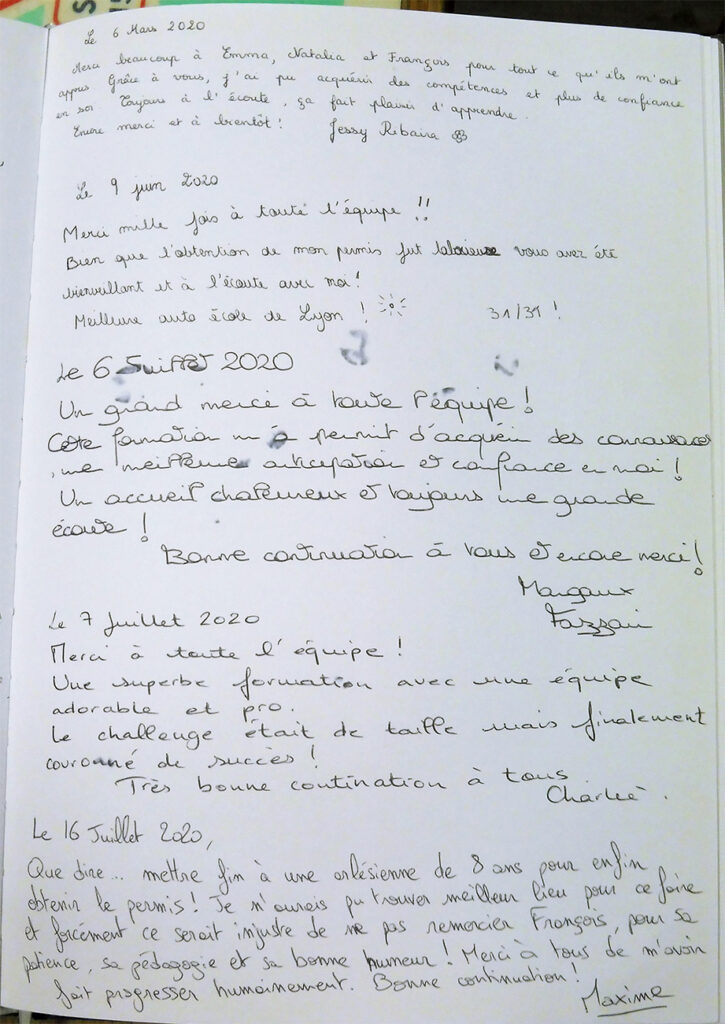 Le 6 Mars 2020
Merci beaucoup à Emma, Natalia et François pour tout ce qu'ils m'ont
appris Grâce à vous, j'ai pu acquérir des compétences et plus de confiance
en soi. Toujours à l'écoute, ça fait plaisir d'apprendre.
Encore merci et à bientôt ! Jessy Ribaira
Le 9 juin 2020
Merci mille fois à toute l'équipe !!
Bien que l'obtention de mon permis fut laborieuse vous avez été
bienveillant et à l'écoute avec moi !
Meilleure auto école de Lyon ! 31/31 !
Le 6 Juillet 2020
Un grand merci à toute l'équipe !
Cette formation m'a permit d'acquérir des connaissances
, une meilleure anticipation et confiance en moi !
Un accueil chaleureux et toujours une grande
écoute !
Bonne continuation à vous et encore merci !
Margaux
Le 7 Juillet 2020
Merci à toute l'équipe !
Une superbe formation avec une équipe
adorable et pro.
Le challenge était de taille mais finalement
couronné de succès !
Très bonne contination à tous
Charlie.
Le 16 Juillet 2020,
Que dire... mettre fin à une arlésienne de 8 ans pour enfin
obtenir le permis ! Je n'aurais pu trouver meilleur lieu pour ce faire
et forcément ce serait injuste de ne pas remercier François, pour sa
patience, sa pédagogie et sa bonne humeur ! Merci à tous de m'avoir
fait progresser humainement. Bonne continuation !
Maxime